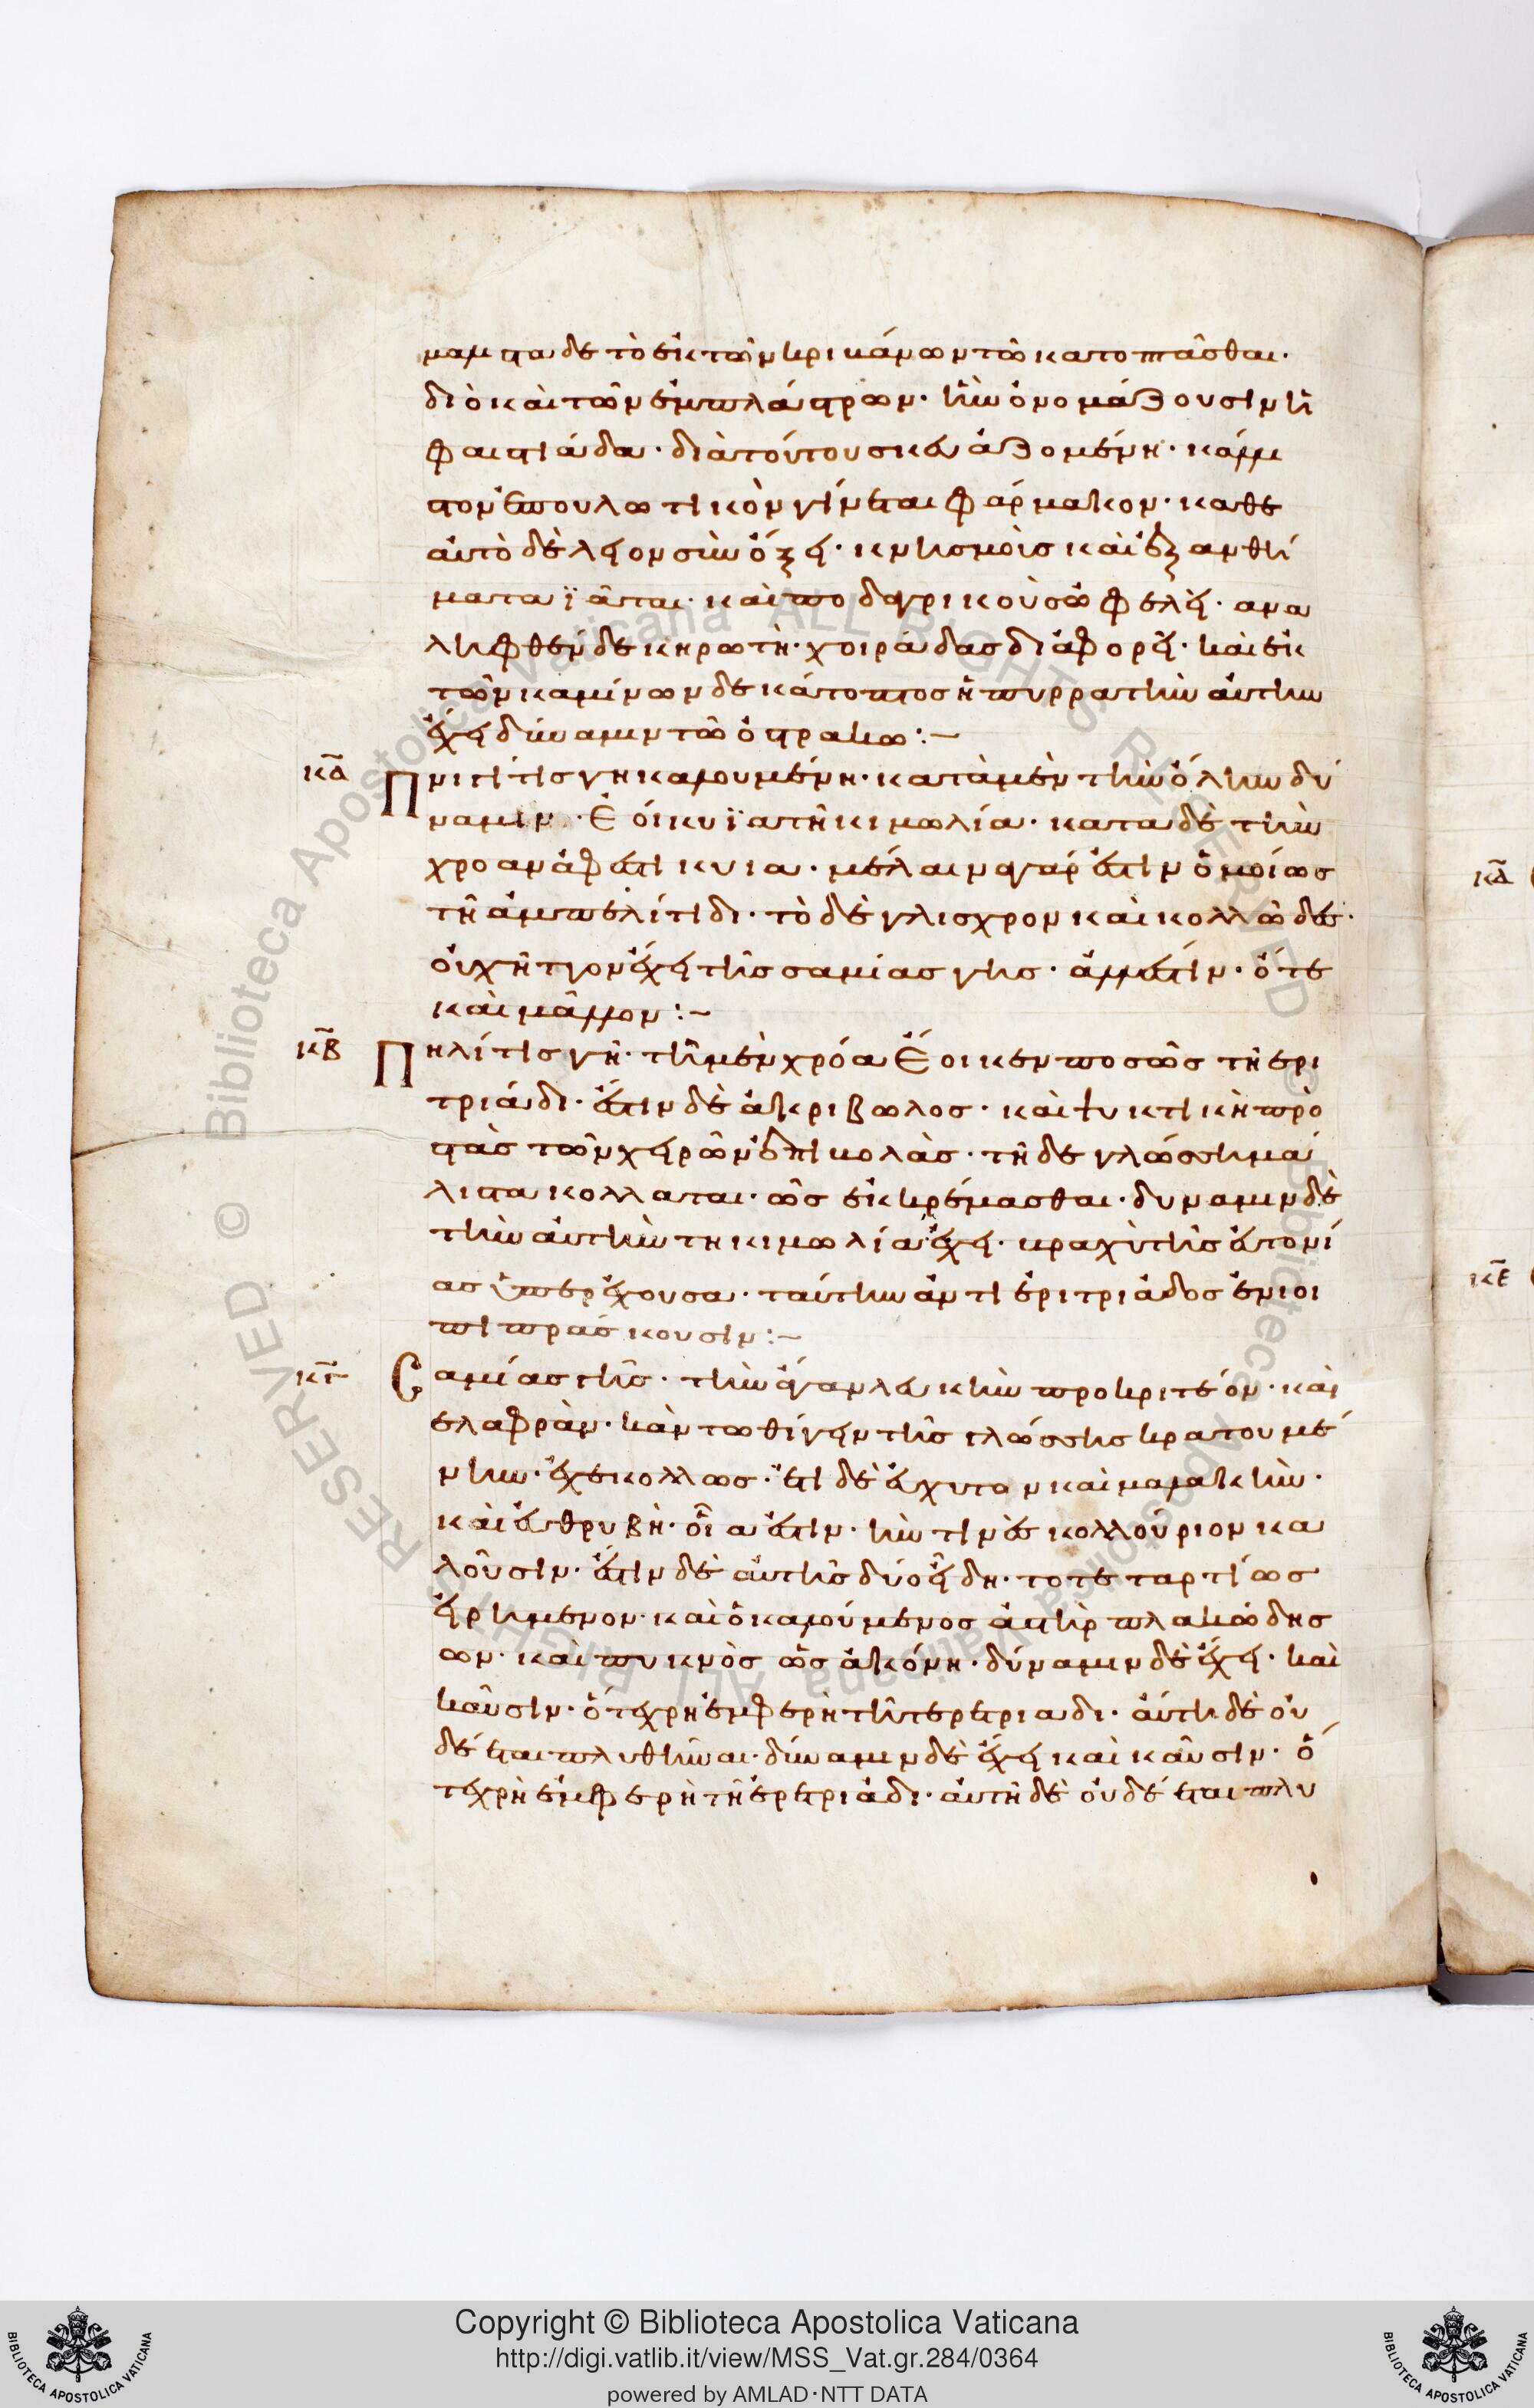 ναμιστα δὲ τὸ ἐκ τῶν κριμάνων τῶ κατοπτᾶσθαι·
διὸ καὶ τῶν ἐμπλάστρων· ἣν ὀνομάζουσιν ἡ
φαιστιάδα· διὰ τούτου σκευαζομένη· κάλλι
στον ἐπουλωτικὸν γίνεται φάρμακον· καθε
αυτὸ δὲ λεῖον σὺν ὄξει· κνησμοῖς καὶ ἐξανθή
ματα ϊᾶται· καὶ ποδαγρικοὺς ὠφελεῖ· ανα
ληφθὲν δὲ κηρωτῆ· χοιράδας διαφορεῖ· καὶ ἐκ
τῶν καμίνων δε κάτοπτος ἢ πυρρα τὴν αὐτὴν
ἔχει δύναμιν τῶ ὀστράκω:~
κα Πνιγῖτις γῆ καλουμένη· κατὰ μὲν τὴν ὅλην δύ
ναμιν· ἐοίκυϊα τῆ κιμωλία· κατα δὲ τὴν
χροαν ἀφέστικυια· μέλαινα γάρ ἐστιν ὁμοίως
τῆ ἀμπελίτιδι· τὸ δὲ γλισχρον καὶ κολλῶδες·
οὐχ ἧττον ἔχει τῆς σαμίας γῆς· ἀλλέστιν· ὅτε
καὶ μᾶλλον:~
κβ Πηλίτις γῆ· τῆ μὲν χρόα ἔοικεν ποσῶς τῆ ερι
τριάδι· ἔστιν δὲ ἀκριβωλος· καὶ ψυκτικὴ πρὸ
στὰς τῶν χειρῶν ἐπικολὰς· τῆ δε γλώσση μά
λιστα κολλαται· ὡς ἐκκρέμασθαι· δυναμιν δὲ
τὴν αὐτὴν τη κιμωλία ἔχει· βραχὺ τῆς ἐυτονί
ας ὑπερέχουσα· ταύτην ἀντὶ ἐριτριάδος ἔνιοι
πιπράσκουσιν:~
κγ Σαμίας γῆς· τὴν ἄγαν λευκὴν προκριτέον· καὶ
ελαφρὰν· κὰν τω θίγειν τῆς γλώσσης κρατουμέ
νην· ἔχε κολλως· ἔτι δὲ ἔγχυτον καὶ μαλακὴν·
καὶ ἐυθρυβῆ· οἵα ἐστιν· ἥν τινὲς κολλούριον κα
λοῦσιν· ἔστιν δὲ αὐτῆς δύο εἴδη· το τε ταρτίως
εἰρημενον· καὶ ὁ καλούμενος ἀστὴρ πλακώδης
ων· καὶ πυκνὸς ὡς ἀκόνη· δύναμιν δὲ ἔχει· καὶ
καῦσιν· ὅτε χρη ἐμφερῆ τῆ τερετριαδι· αὐτη δὲ οὐ
δέ εται πλυθῆναι· δύναμιν δὲ ἔχει καὶ καῦσιν· ὅ
τε χρὴ ἐμφερῆ τῆ ἐρετριάδι· αὐτῆ δὲ οὐδέ εται πλυ
κδ
κε
Copyright © Biblioteca Apostolica Vaticana
http://digi.vatlib.it/view/MSS_Vat.gr.284/0364
powered by AMLAD·NTT DATA